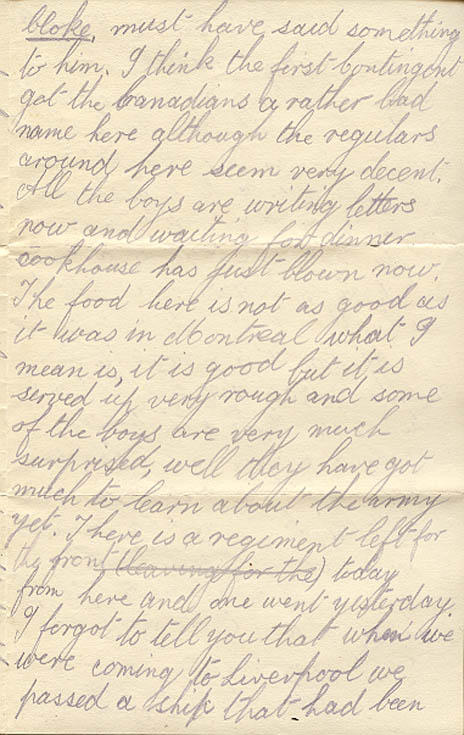 bloke, must have said something
to him. I think the first contingent
got the Canadians a rather bad
name here although the regulars
around here seem very decent.
All the boys are writing letters
now and waiting for dinner
cookhouse has just blown now.
The food here is not as good as
it was in Montreal what I
mean is, it is good but it is
served up very rough and some
of the boys are very much
surprised, well they have got
much to learn about the army
yet. There is a regiment left for
the front (leaving for the) today
from here and one went yesterday.
I forgot to tell you that when we
were coming to Liverpool we
passed a ship that had been